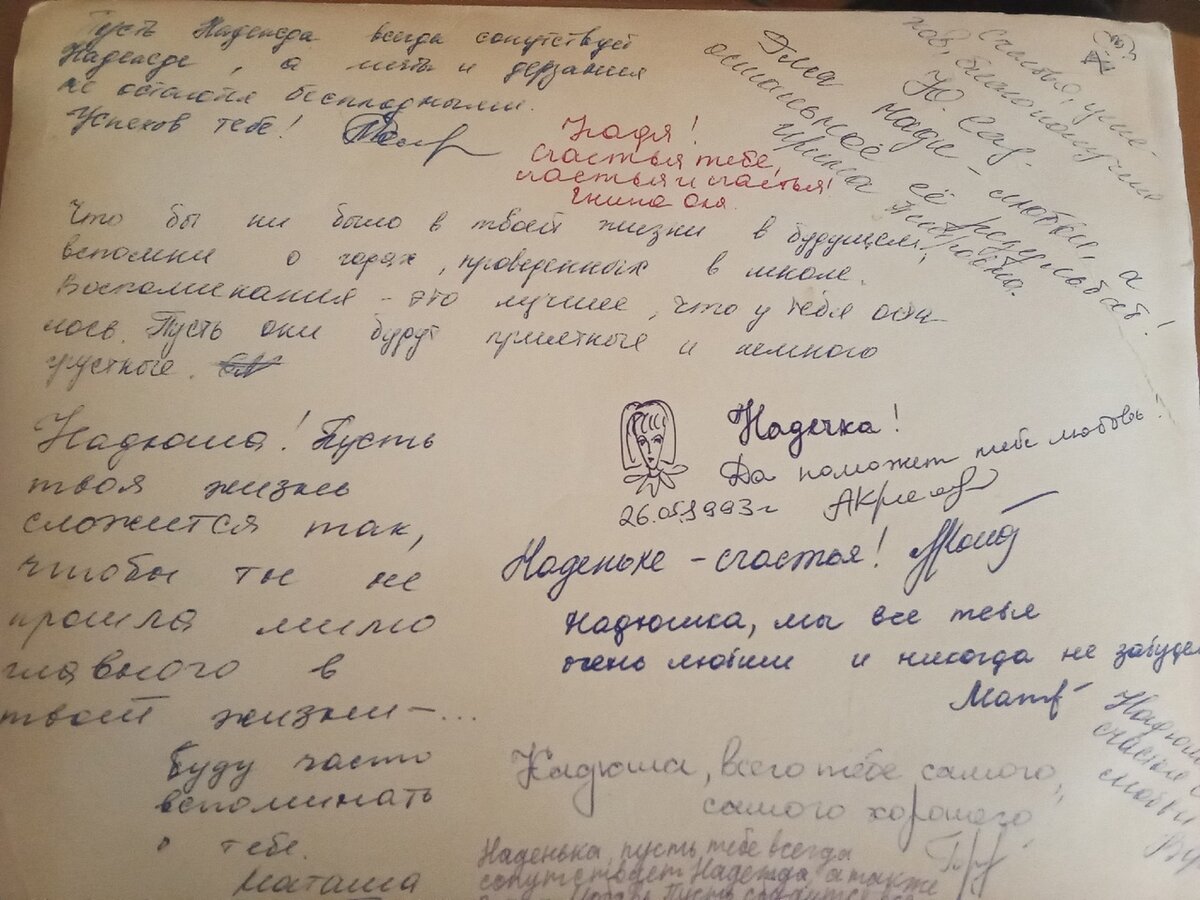 Пусть Надежда всегда сопутствует
Надежде, а мечты и дерзания
не остаются бесплодными.
Успехов тебе!
Надя!
Счастья тебе,
счастья и счастья!
Оля.
Счастья,
благополучия
Ю. Сав.
Наде - любви, а
остальное её
Ирина Петровна.
Что бы ни было в твоей жизни в будущем,
вспомни о годах, проведенных в школе.
Воспоминания - это лучшее, что у тебя оста-
лось. Пусть они будут приятные и немного
грустные.
Надюша! Пусть
твоя жизнь
сложится так,
чтобы ты не
прошла мимо
главного в
твоей жизни-...
Буду часто
вспоминать
о тебе.
Наташа
Надечка!
Да поможет тебе любовь!
26.05.1993г
Наденьке - счастья!
Надюшка, мы все тебя
очень любим и никогда не забудем
Надюша, всего тебе самого,
самого хорошего
Наденька, пусть тебе всегда
сопутствует Надежда а также
Надюш
счастья
любви